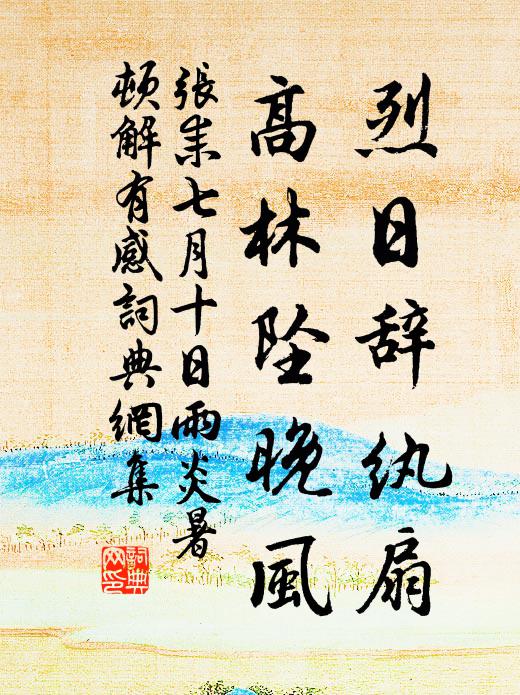 烈日辞纨扇
高林坠晚風
張耒七月十日雨炎暑
頓解有感詞典網集
詞典网印